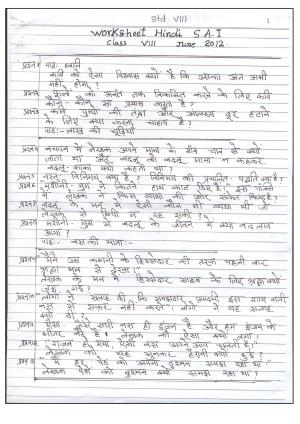 Std VIII
1
Worksheet Hindi S.A.I
Class VIII June 2012.
पाठ: ध्वनि
कवि को ऐसा विश्वास क्यों है कि उसका अंत अभी
नहीं होगा?
फूलों को अनंत तक विकसित करने के लिए कवि
कौन-कौन सा प्रयास करता है?
कवि पुष्पों की तंद्रा और आलस्य दूर हटाने
के लिए क्या करना चाहता है?
पाठ:- लाख की चूड़ियाँ
बचपन में लेखक अपने मामा के गाँव चाव से क्यों
जाता था और बदलू को बदलू मामा न कहकर
बदलू काका क्यों कहता था?
वस्तु विनिमय क्या है? विनिमय की प्रचलित पद्धति क्या है?
मशीनी युग ने कितने हाथ काट दिए हैं। इस पंक्ति
में लेखक ने किस व्यथा की ओर संकेत किया है?
बदलू के मन में ऐसी कौन सी व्यथा थी जो
लेखक से छिपी न रह सकी?
मशीनी युग से बदलू के जीवन में क्या बदलाव
आया?
पाठ:- बस की यात्रा:-
मैंने उस कंपनी के हिस्सेदार की तरफ पहली बार
श्रद्धा भाव से देखा।
लेखक के मन में हिस्सेदार साहब के लिए श्रद्धा क्यों
जग गई?
लोगों ने सलाह दी, कि समझदार आदमी इस शाम वाली
बस से सफर नहीं करते। लोगों ने यह सलाह
क्यों दी?
ऐसा जैसे सारी बस ही इंजन है और हम इंजन के
भीतर बैठे हैं। लेखक को ऐसा क्यों लगा?
गज़ब हो गया, ऐसी बस अपने आप चलती है।
लेखक को यह सुनकर हैरानी क्यों हुई?
मैं हर पेड़ को अपना दुश्मन समझ रहा था।
लेखक पेड़ों को दुश्मन क्यों समझ रहा था?